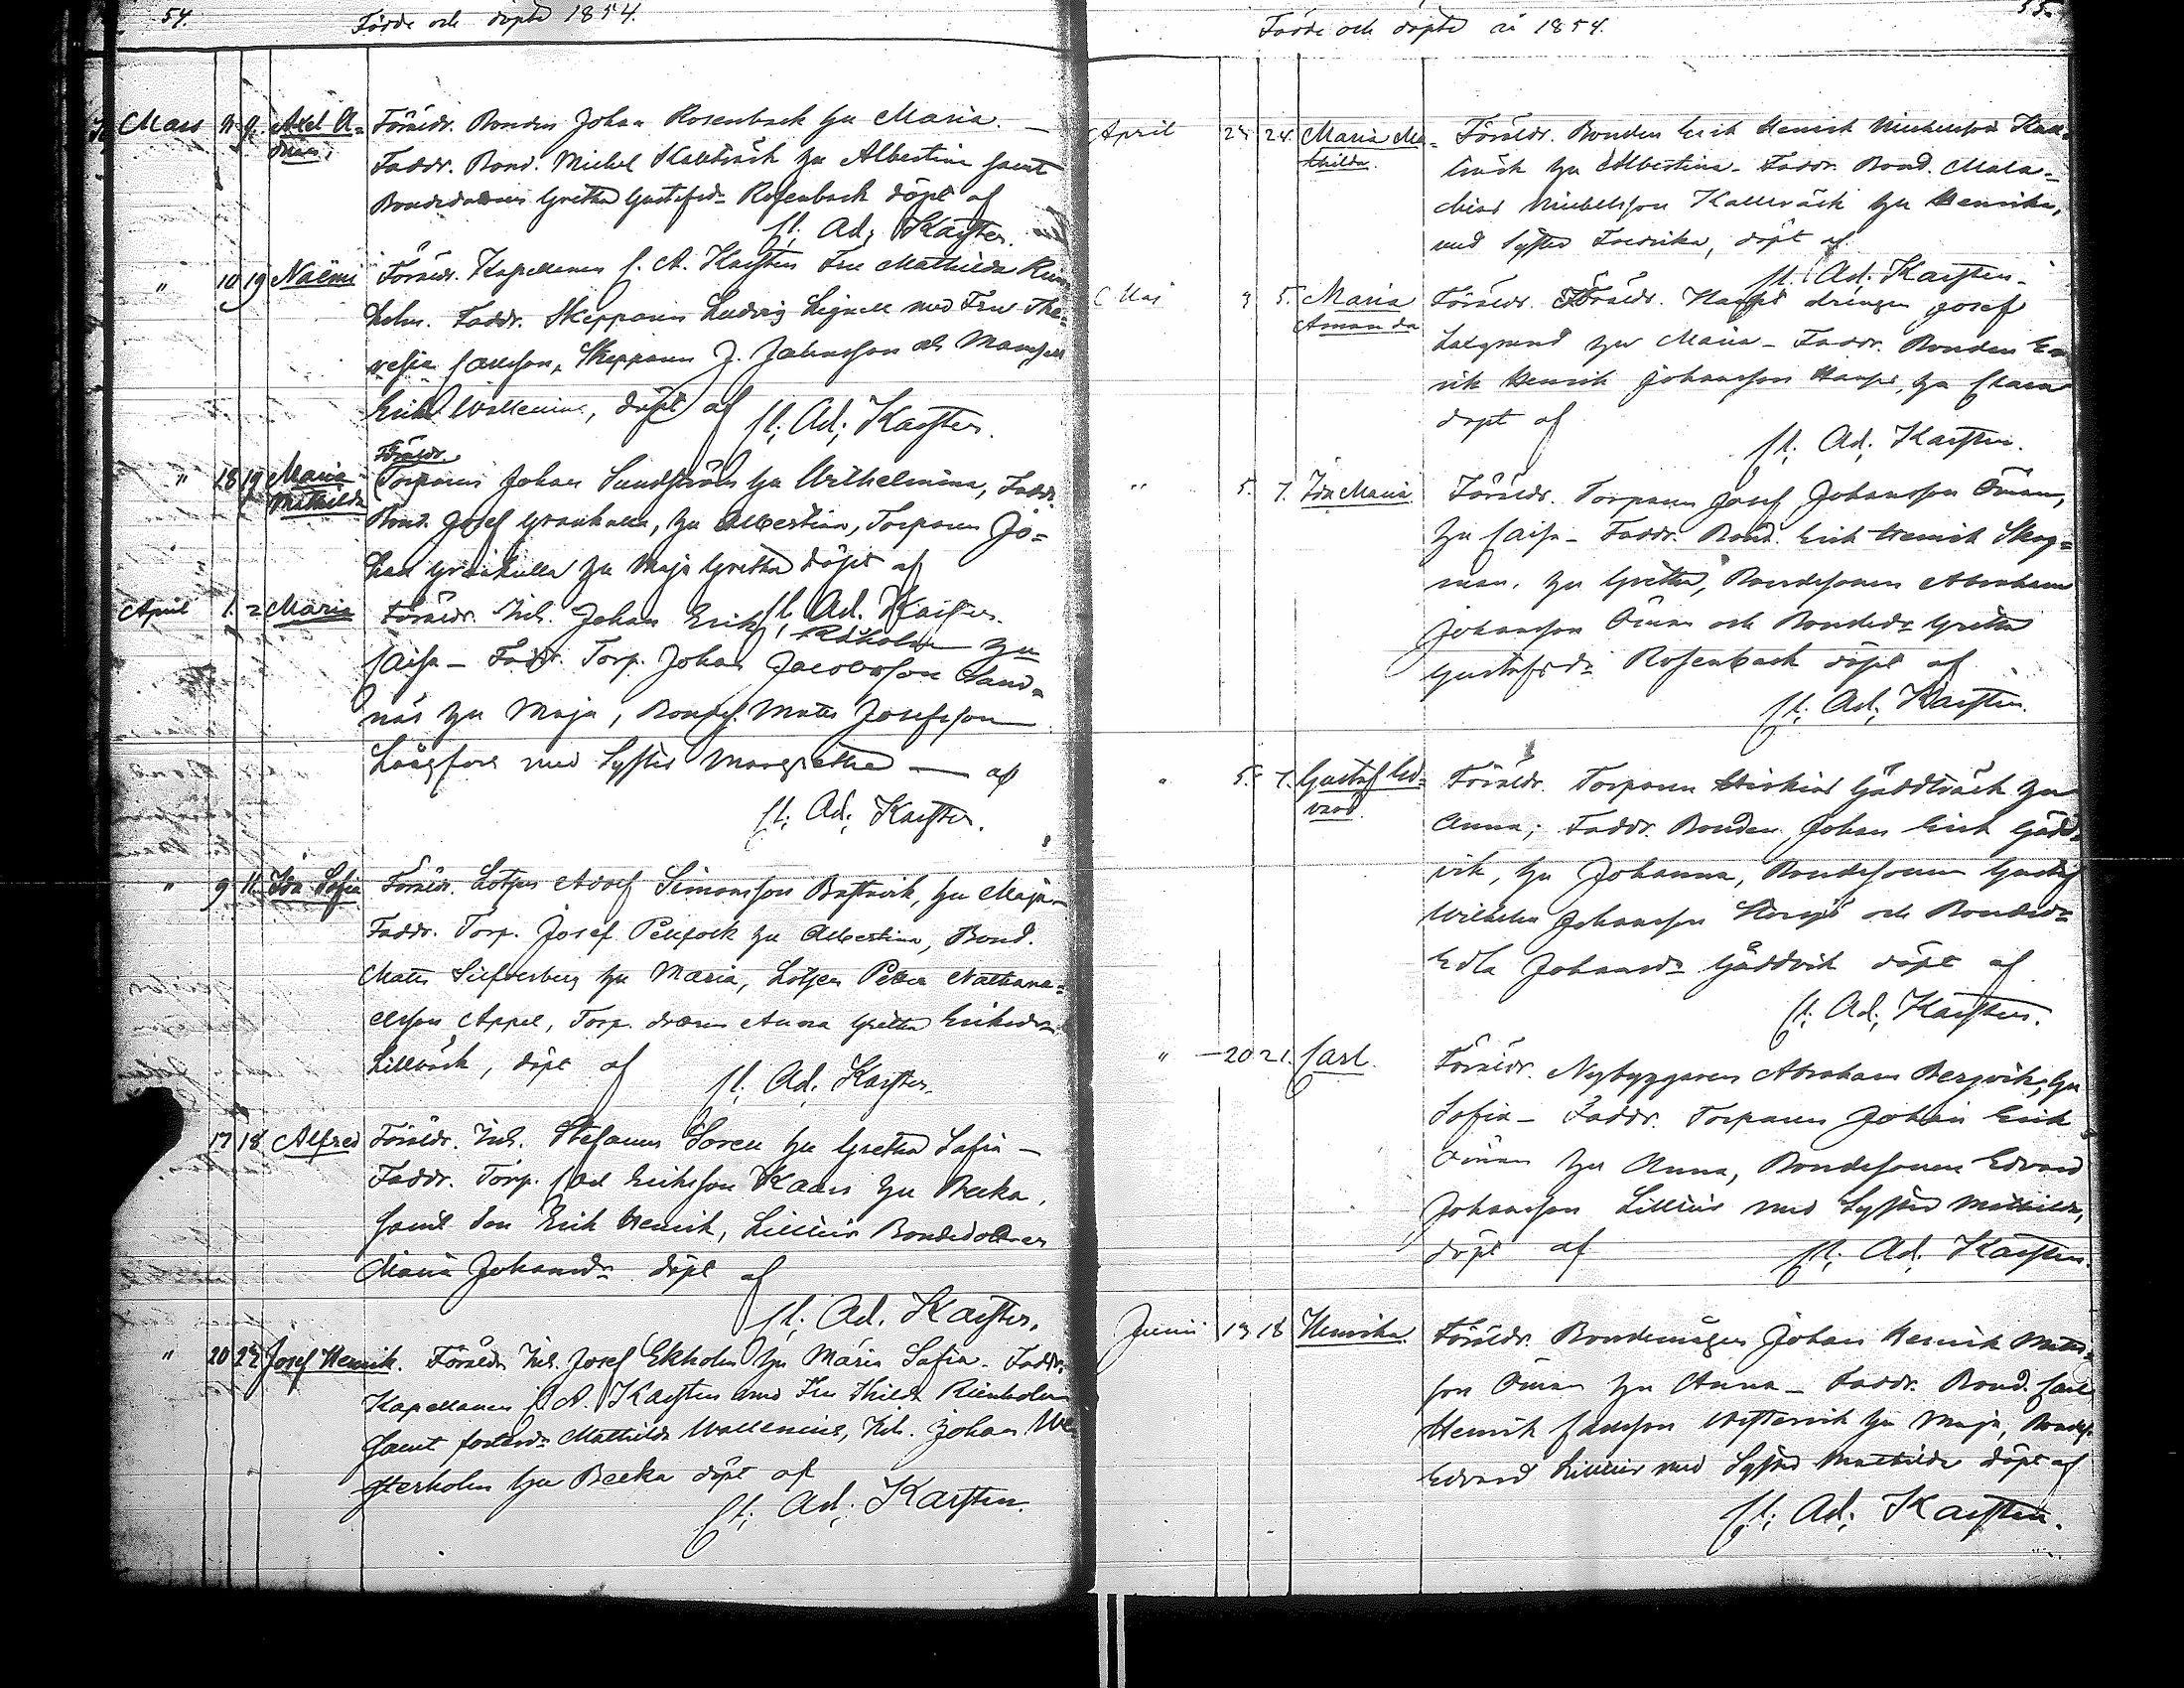 54.
Födde och döpte 1854.
Mars 9. Axel A= Föräldr. Bonden Johan Rosenback hu Maria. —
Faddr. Bond. Michel Kallträsk hu Albertina samt
Bondedottren Gretha Gustafsdr Rosenback döpt af
Cl. Ad. Karsten.
" 10 19 Naëmi Föräldr. Kapellanen C. A. Karsten Fru Mathilda
holm. Faddr. Skepparen Ludvig Lignell med Fru The=
resia Carlsson, Skepparen J. Johansson och Mamsell
Wallenius, döpt af Cl. Ad. Karsten.
Föräldr.
" 18 19 Maria Torparen Johan Sundström hu Wilhelmina, Faddr.
Mathilda Bond. Josef Grankulla, hu Albertina, Torparen Jo=
han Grankulla hu Maja Gretha döpt af
Cl. Ad. Karsten.
April 1. 2 Maria Föräldr. Inh. Johan Erik Råholm hu
Caisa – Faddr. Torp. Johan Jacobsson Sand=
näs hu Maja, Bondes. Mats Josefsson
Långfors med Syster Margretha — af
Cl. Ad. Karsten.
" 9 11. Ida Sofia Föräldr. Lotsen Adolf Simonsson Bastvik, hu Maja –
Faddr. Torp. Josef Pellfolk hu Albertina, Bond.
Mats Silfverberg hu Maria, Lotsen Petter Nathana=
elsson Appel, Torp. Anna Gretha Eriksdr
döpt af Cl. Ad. Karsten.
17 18 Alfred Föräldr. Inh. Stefanus Soren hu Gretha Sofia –
Faddr. Torp. Carl Eriksson Kaars hu Becka,
samt Son Erik Henrik, Lillsiö Bondedottren
Maria Johansdr döpt af
Cl. Ad. Karsten.
" 20 22 Josef Henrik. Föräldr. Inh. Josef Ekholm hu Maria Sofia – Faddr.
Kapellanen C. A. Karsten med Fru Thilda
samt fosterdr Mathilda Wallenius, Inh. Johan We
sterholm hu Becka döpt af
Cl. Ad. Karsten.
55.
Födde och döpte år 1854.
April 23. 24. Maria Ma= Föräldr. Bonden Erik Henrik Michelsson Kall=
thilda. träsk hu Albertina – Faddr. Bond. Mala=
kias Michelsson Kallträsk hu Henrika,
med Syster Fredrika, döpt af
Cl. Ad. Karsten.
Maj 3 5. Maria Föräldr. Föräldr. drängen Josef
Amanda Laxgrund hu Maria – Faddr. Bonden E=
rik Henrik Johansson hu Clara
döpt af
Cl. Ad. Karsten.
" 5. 7. Ida Maria Föräldr. Torparen Josef Johansson Öman,
hu Caisa – Faddr. Bond. Erik Henrik Skog=
man, hu Gretha, Bondesonen Abraham
Johansson Öman och Bondedr Gretha
Gustafsdr Rosenback döpt af
Cl. Ad. Karsten.
" 5. 7. Gustaf Ed= Föräldr. Torparen Hiskias Gäddträsk hu
vard. Anna; Faddr. Bonden Johan Erik Gädd=
vik, hu Johanna, Bondesonen Gustaf
Wilhelm Johansson Storsjö och Bondedr
Edla Johansdr Gäddvik döpt af
Cl. Ad. Karsten.
" 20 21. Carl. Föräldr. Nybyggaren Abraham Bergvik, hu
Sofia – Faddr. Torparen Johan Erik
Öman hu Anna, Bondesonen Edvard
Johansson Lillsiö med Syster Mathilda,
döpt af Cl. Ad. Karsten.
Junii 13 18 Henrika. Föräldr. Bondemågen Johan Henrik Matts=
son Öman hu Anna – Faddr. Bond. Carl
Henrik Carlsson Westervik hu Maja, Bondes.
Edvard Lillsiö med Syster Mathilda döpt af
Cl. Ad. Karsten.